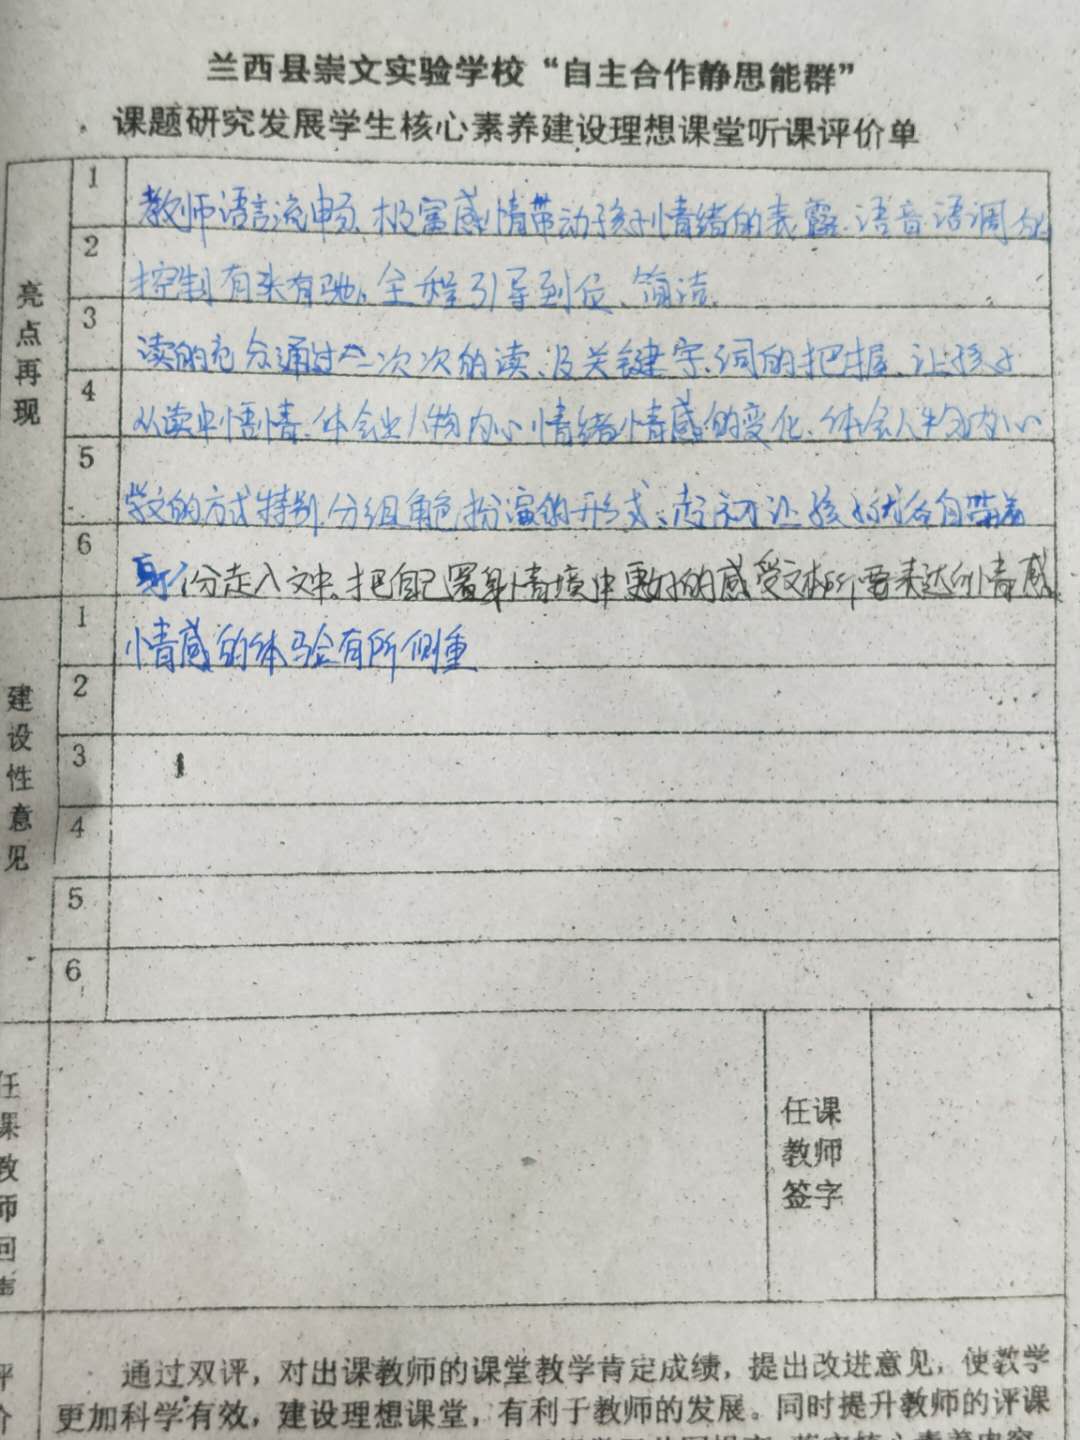 兰西县崇文实验学校“自主合作静思能群”
课题研究发展学生核心素养建设理想课堂听课评价单
亮点再现
1
教师语言流申畅、极富感情带动孩子情绪的表露、语音语调的
2
控制有张有驰。全程引导到位、简洁。
3
读的充分通过一次次的读、及关键字、词的把握、让孩子
4
从读中悟情、体会出人物内心情绪情感的变化、体会人物内心
5
学文的方式特别、分组角色扮演的形式、让孩子各自带着
6
身份走入文中、把自己置身情境中更好的感受文本所要表达的情感
建设性意见
1
情感的体验有所侧重
2
3
4
5
6
任课教师回声
任课教师签字
评价
通过双评，对出课教师的课堂教学肯定成绩，提出改进意见，使教学
更加科学有效，建设理想课堂，有利于教师的发展。同时提升教师的评课